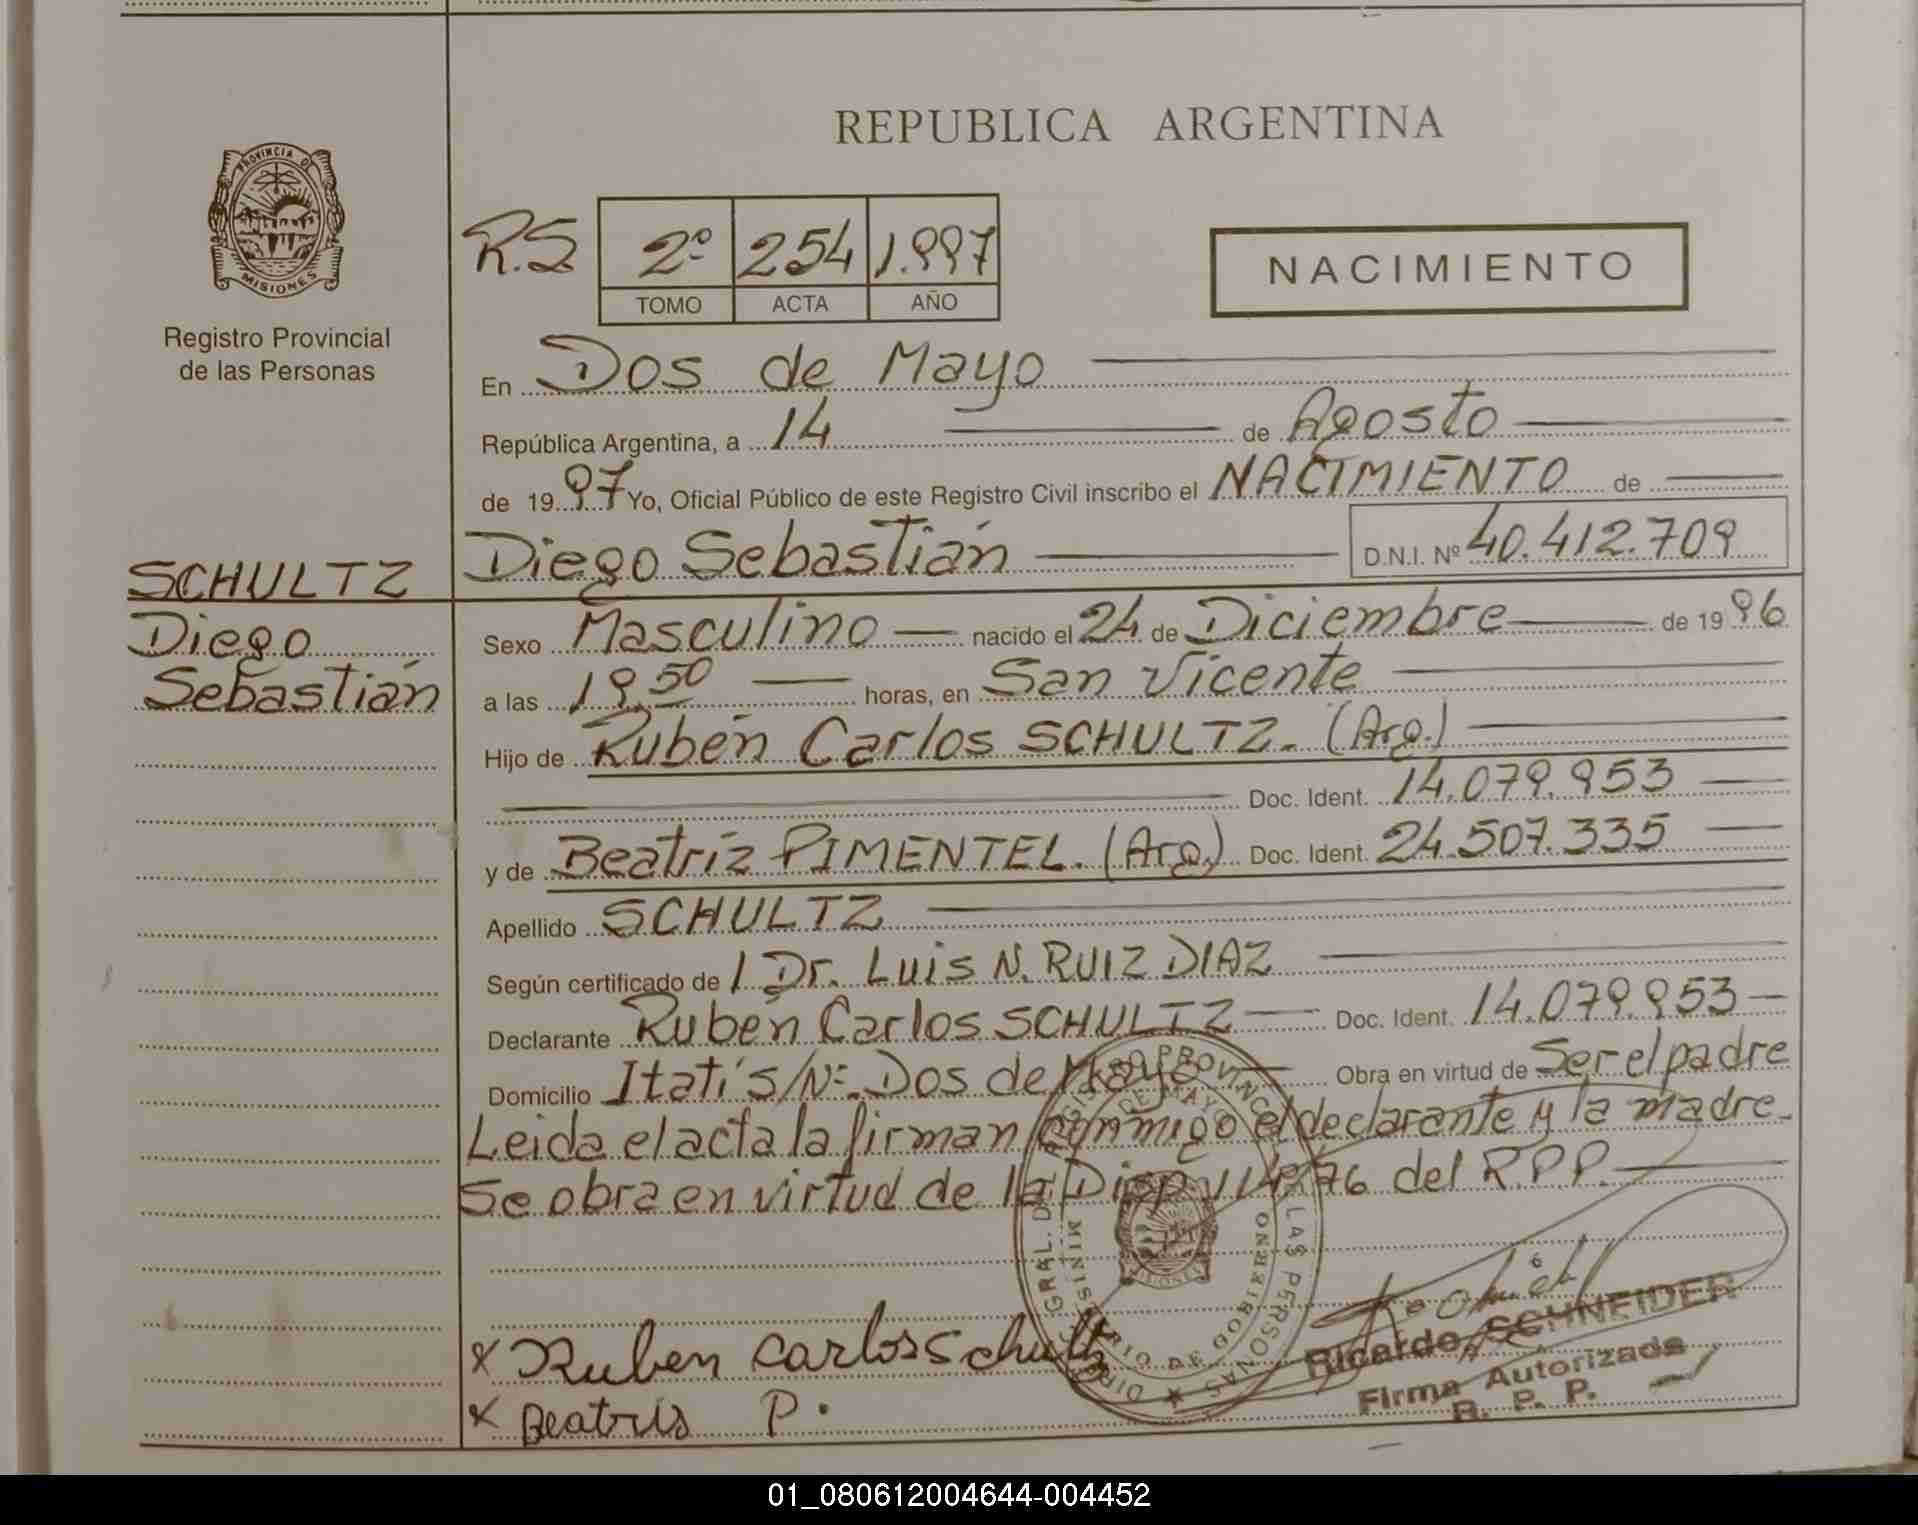 REPUBLICA ARGENTINA
PROVINCIA DE
MISIONES
Registro Provincial
de las Personas
R.S 2º 254 1.997
TOMO ACTA AÑO
NACIMIENTO
En Dos de Mayo
República Argentina, a 14 de Agosto
de 1997 Yo, Oficial Público de este Registro Civil inscribo el NACIMIENTO de
Diego Sebastián D.N.I. Nº 40.412.709
SCHULTZ
Diego
Sebastián
Sexo Masculino nacido el 24 de Diciembre de 1996
a las 19,50 horas, en San Vicente
Hijo de Rubén Carlos SCHULTZ. (Arg.)
Doc. Ident. 14.079.953
y de Beatríz PIMENTEL. (Arg.) Doc. Ident. 24.507.335
Apellido SCHULTZ
Según certificado de Dr. Luis N. RUIZ DIAZ
Declarante Rubén Carlos SCHULTZ Doc. Ident. 14.079.953
Domicilio Itatí s/Nº Dos de Mayo Obra en virtud de Ser el padre
Leida el acta la firman conmigo el declarante y la madre.
Se obra en virtud de la Disp. 114/76 del R.P.P.
DIREC. GRAL. DEL REGISTRO PROVINCIAL DE LAS PERSONAS
DE MAYO
MINISTERIO DE GOBIERNO
MISIONES
x Ruben carlos Schultz
x Beatris P.
Ricardo SCHNEIDER
Firma Autorizada
R. P. P.
01_080612004644-004452